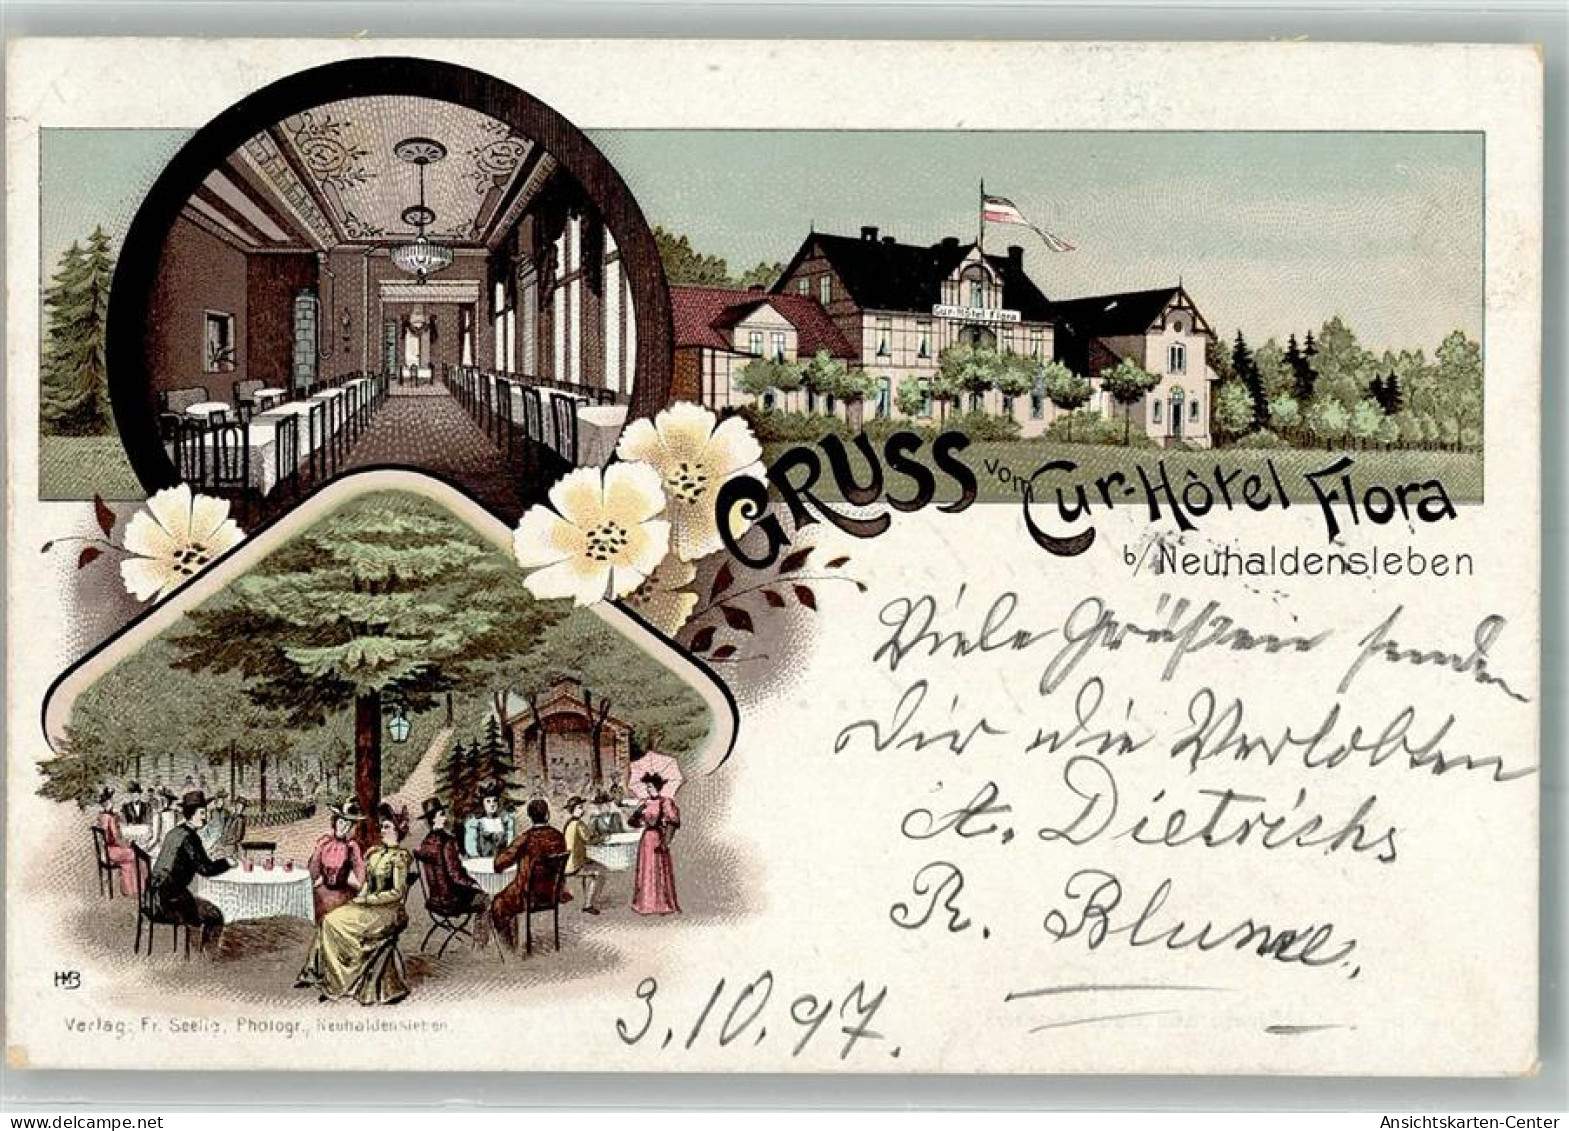 Cur-Hôtel Flora
GRUSS vom Cur-Hôtel Flora
b/Neuhaldensleben
Viele Grüße senden
Dir die Verlobten
A. Dietrichs
R. Blume.
3.10.97.
HMB
Verlag: Fr. Seelig, Photogr., Neuhaldensleben.
AnsichtsKarten-Center